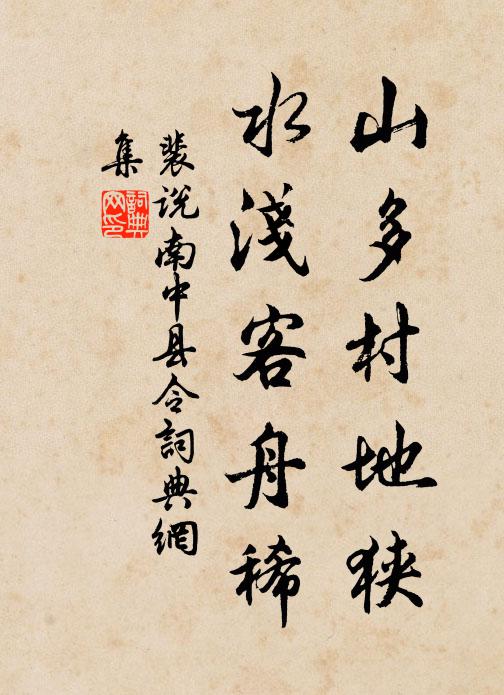 山多村地狹
水淺客舟稀
裴说南中县令詞典網
集
詞典網印